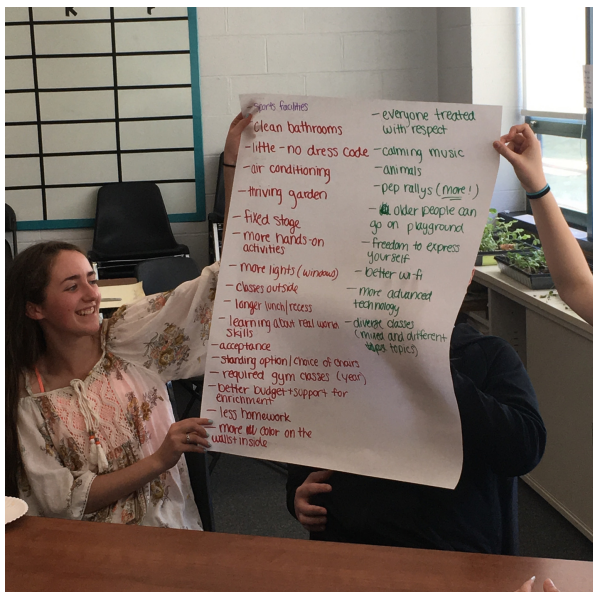 K P
- sports facilities
- clean bathrooms
- little - no dress code
- air conditioning
- thriving garden
- fixed stage
- more hands-on
activities
- more lights (windows)
- classes outside
- longer lunch/recess
- learning about real world
skills
- acceptance
- standing option / choice of chairs
- required gym classes (year)
- better budget + support for
enrichment
- less homework
- more color on the
walls + inside
- everyone treated
with respect
- calming music
- animals
- pep rallys (more!)
- older people can
go on playground
- freedom to express
yourself
- better wi-fi
- more advanced
technology
- diverse classes
(mixed and different
topics)